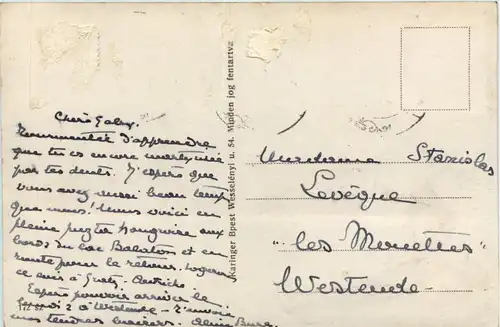 Chère Gaby.
Tourmentée d'apprendre
que tu es encore martyrisée
par tes dents. J'espère que
vous avez aussi beau temps
que nous! Nous voici en
pleine puszta hongroise aux
bords du lac Balaton et en
route pour la retour. logerons
ce soir à Graz. Autriche.
Espère pouvoir arriver le
à Westende - T'envoie
mes tendres baisers.
Karinger Bpest Wesselényi u. 54. Minden jog fentartva
Madame Stanislas
Levêque
"les Mouettes"
Westende